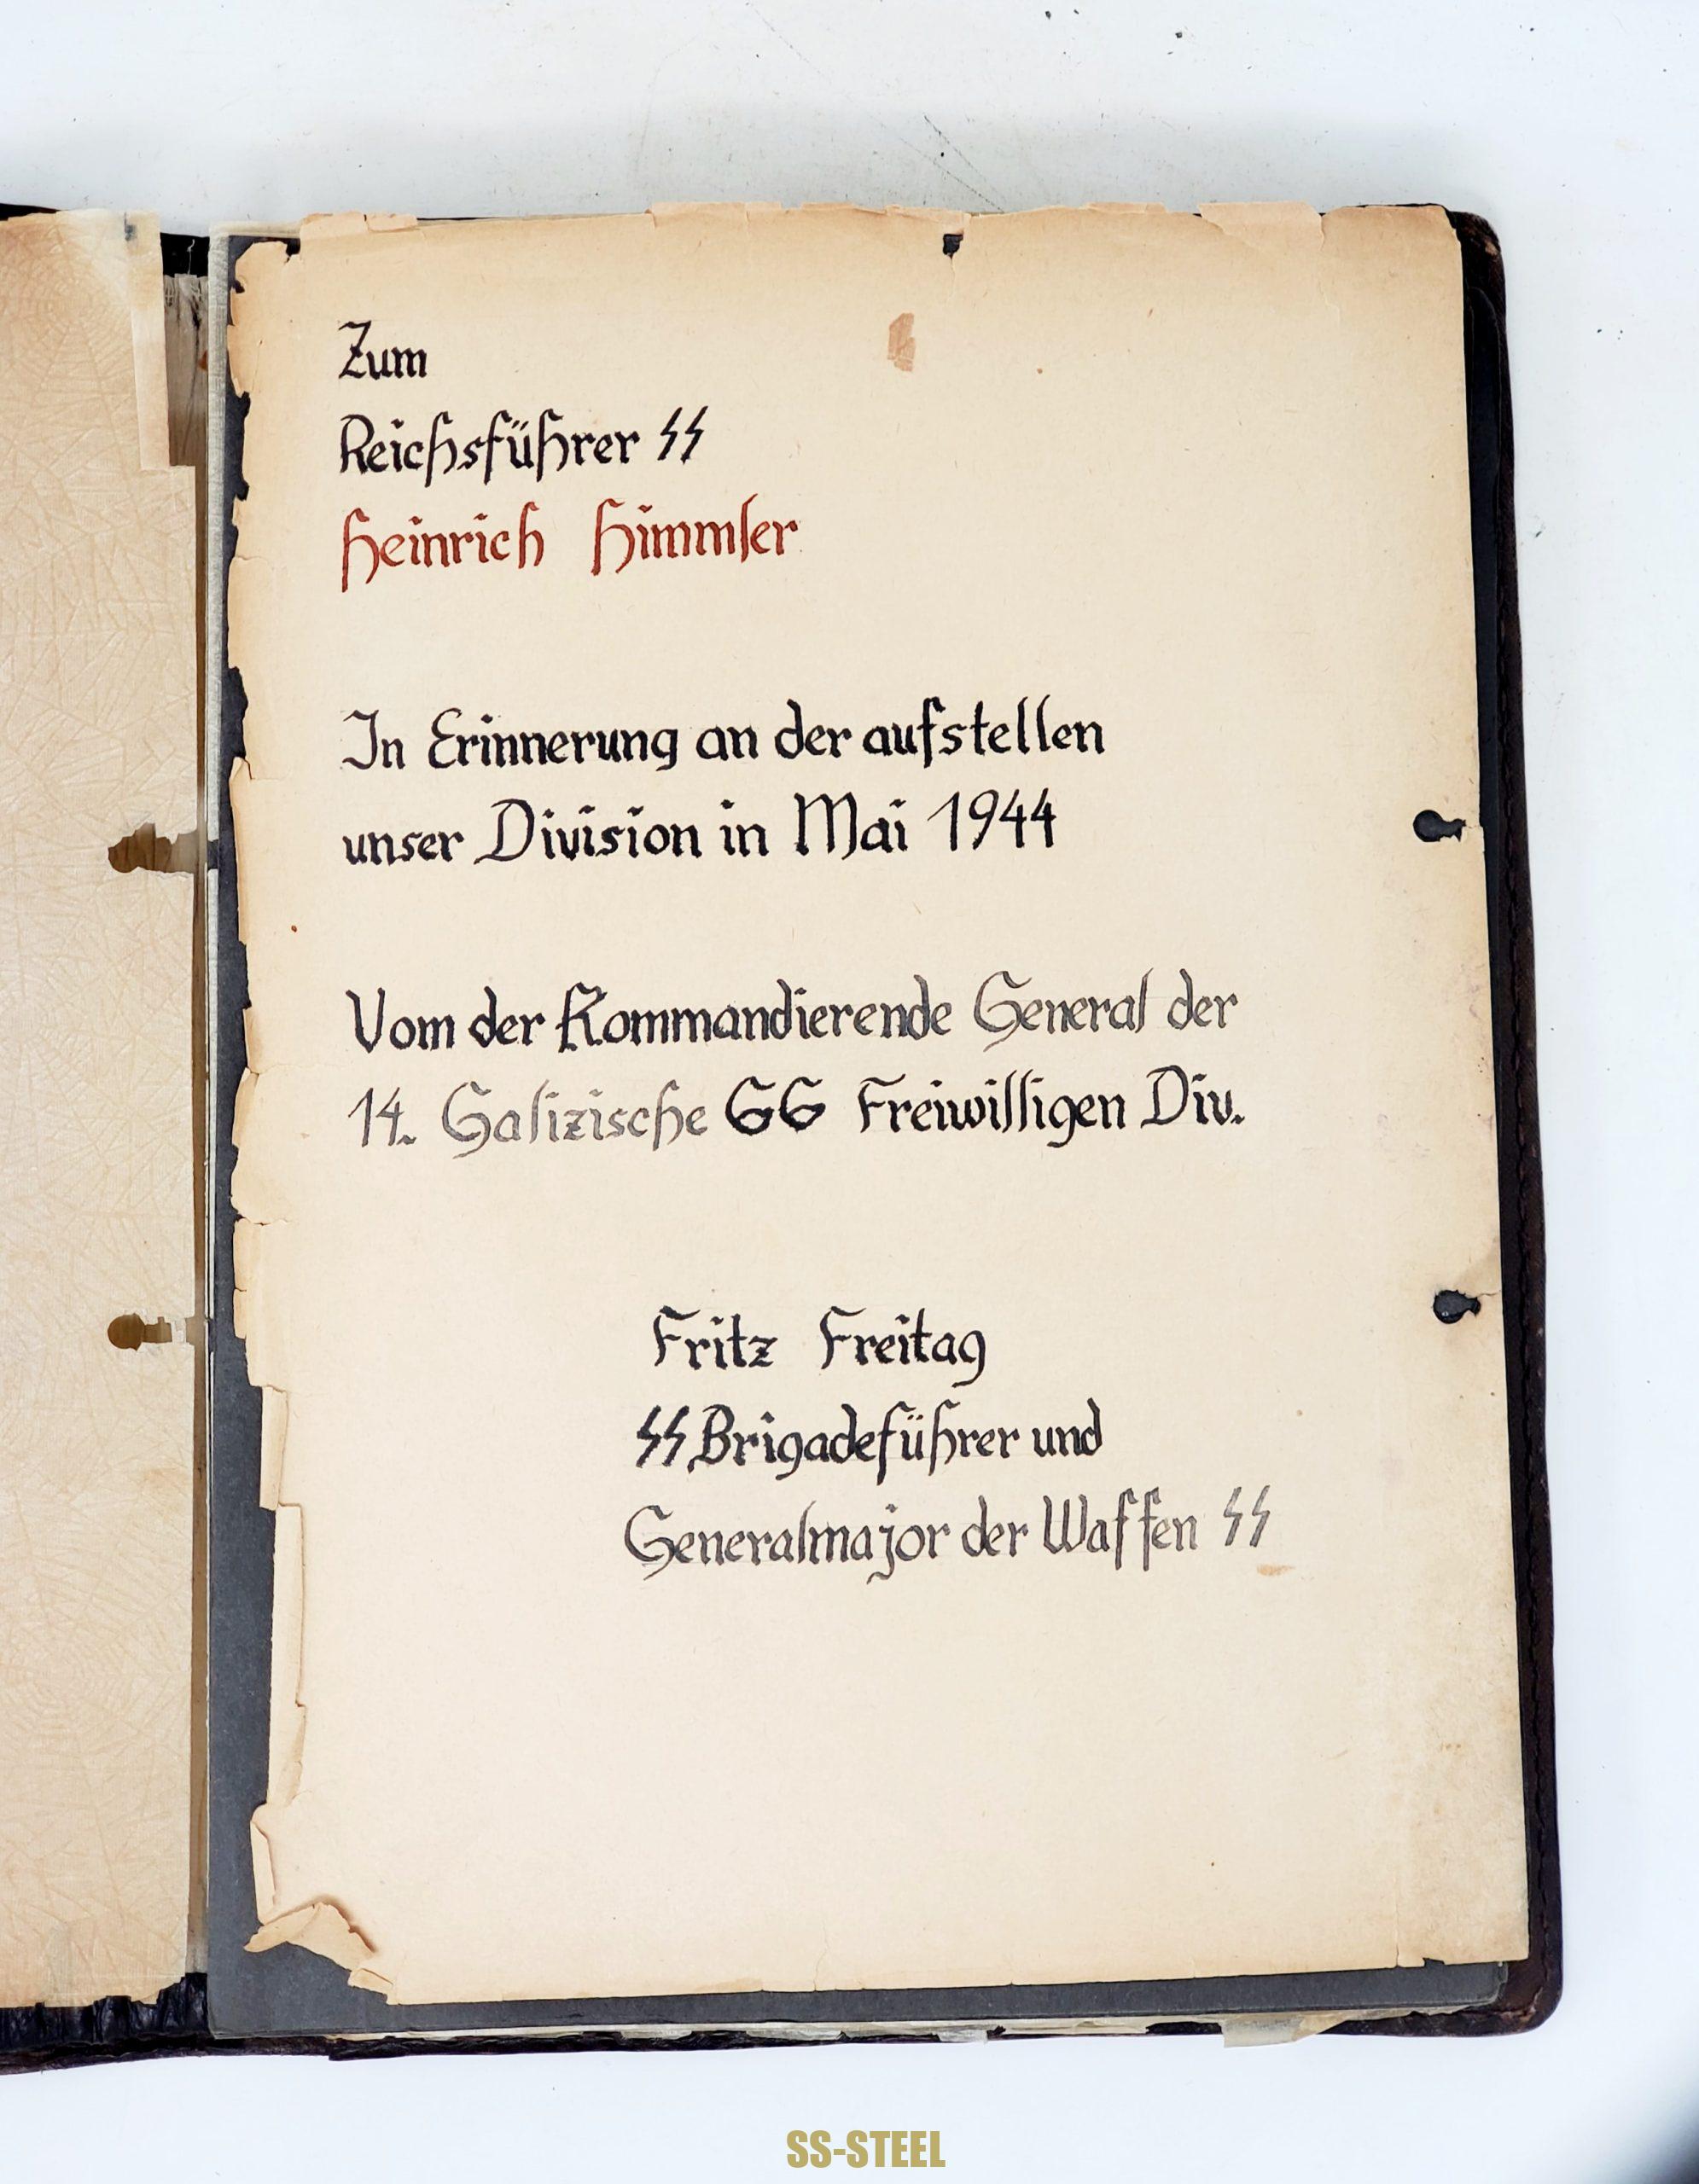 Zum
Reichsführer SS
Heinrich Himmler
In Erinnerung an der aufstellen
unser Division in Mai 1944
Vom der Kommandierende General der
14. Galizische GG Freiwilligen Div.
Fritz Freitag
SS Brigadeführer und
Generalmajor der Waffen SS
SS-STEEL